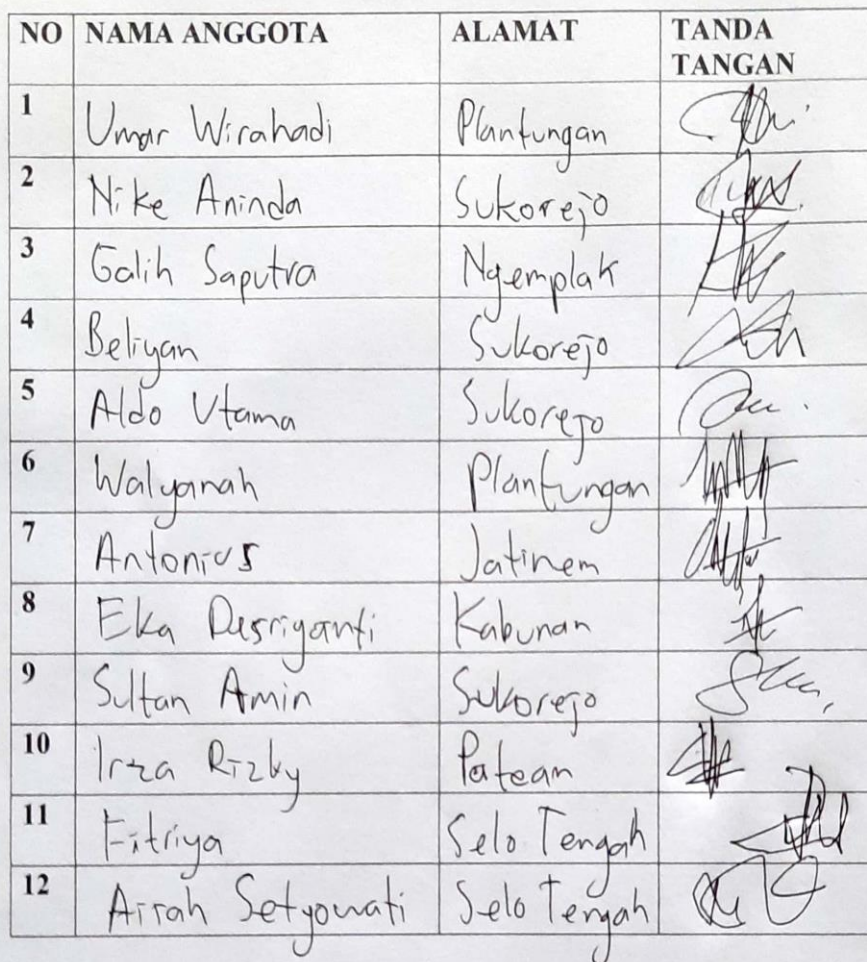 NO NAMA ANGGOTA ALAMAT TANDA TANGAN
1 Umar Wirahadi Plantungan
2 Nike Aninda Sukorejo
3 Galih Saputra Ngemplak
4 Beliyan Sukorejo
5 Aldo Utama Sukorejo
6 Walyanah Plantungan
7 Antonius Jatinem
8 Eka Desriyanti Kabunan
9 Sultan Amin Sukorejo
10 Irza Rizky Patean
11 Fitriya Selo Tengah
12 Airah Setyowati Selo Tengah